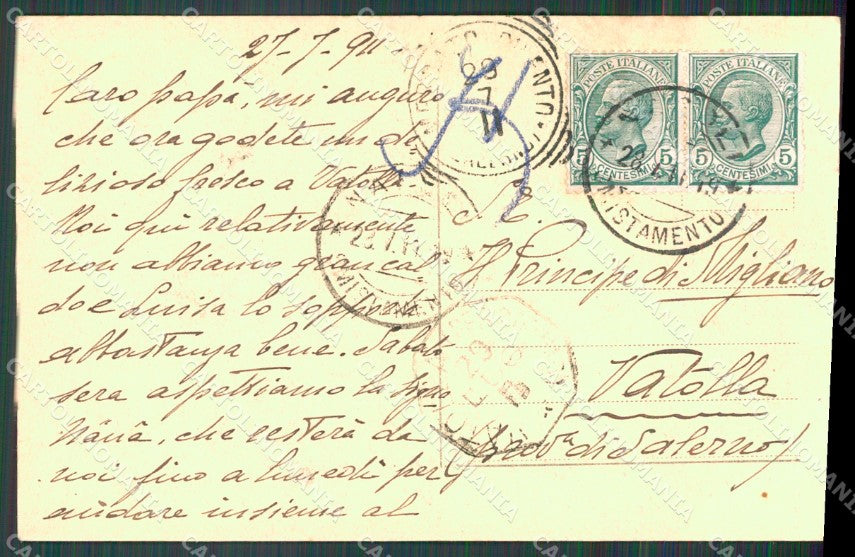 27-7-911
Caro papà, mi auguro
che ora godete un de
lizioso fresco a Vatolla.
Noi qui relativamente
non abbiamo gran cal
do e Luisa lo sopporta
abbastanza bene. Sabato
sera aspettiamo la Sigra
Nanà, che resterà da
noi fino a lunedì per
andare insieme al
A.
Il Principe di Migliano
Vatolla
(Prov. di Salerno)
POSTE ITALIANE
5 CENTESIMI 5
POSTE ITALIANE
5 CENTESIMI 5
CILENTO